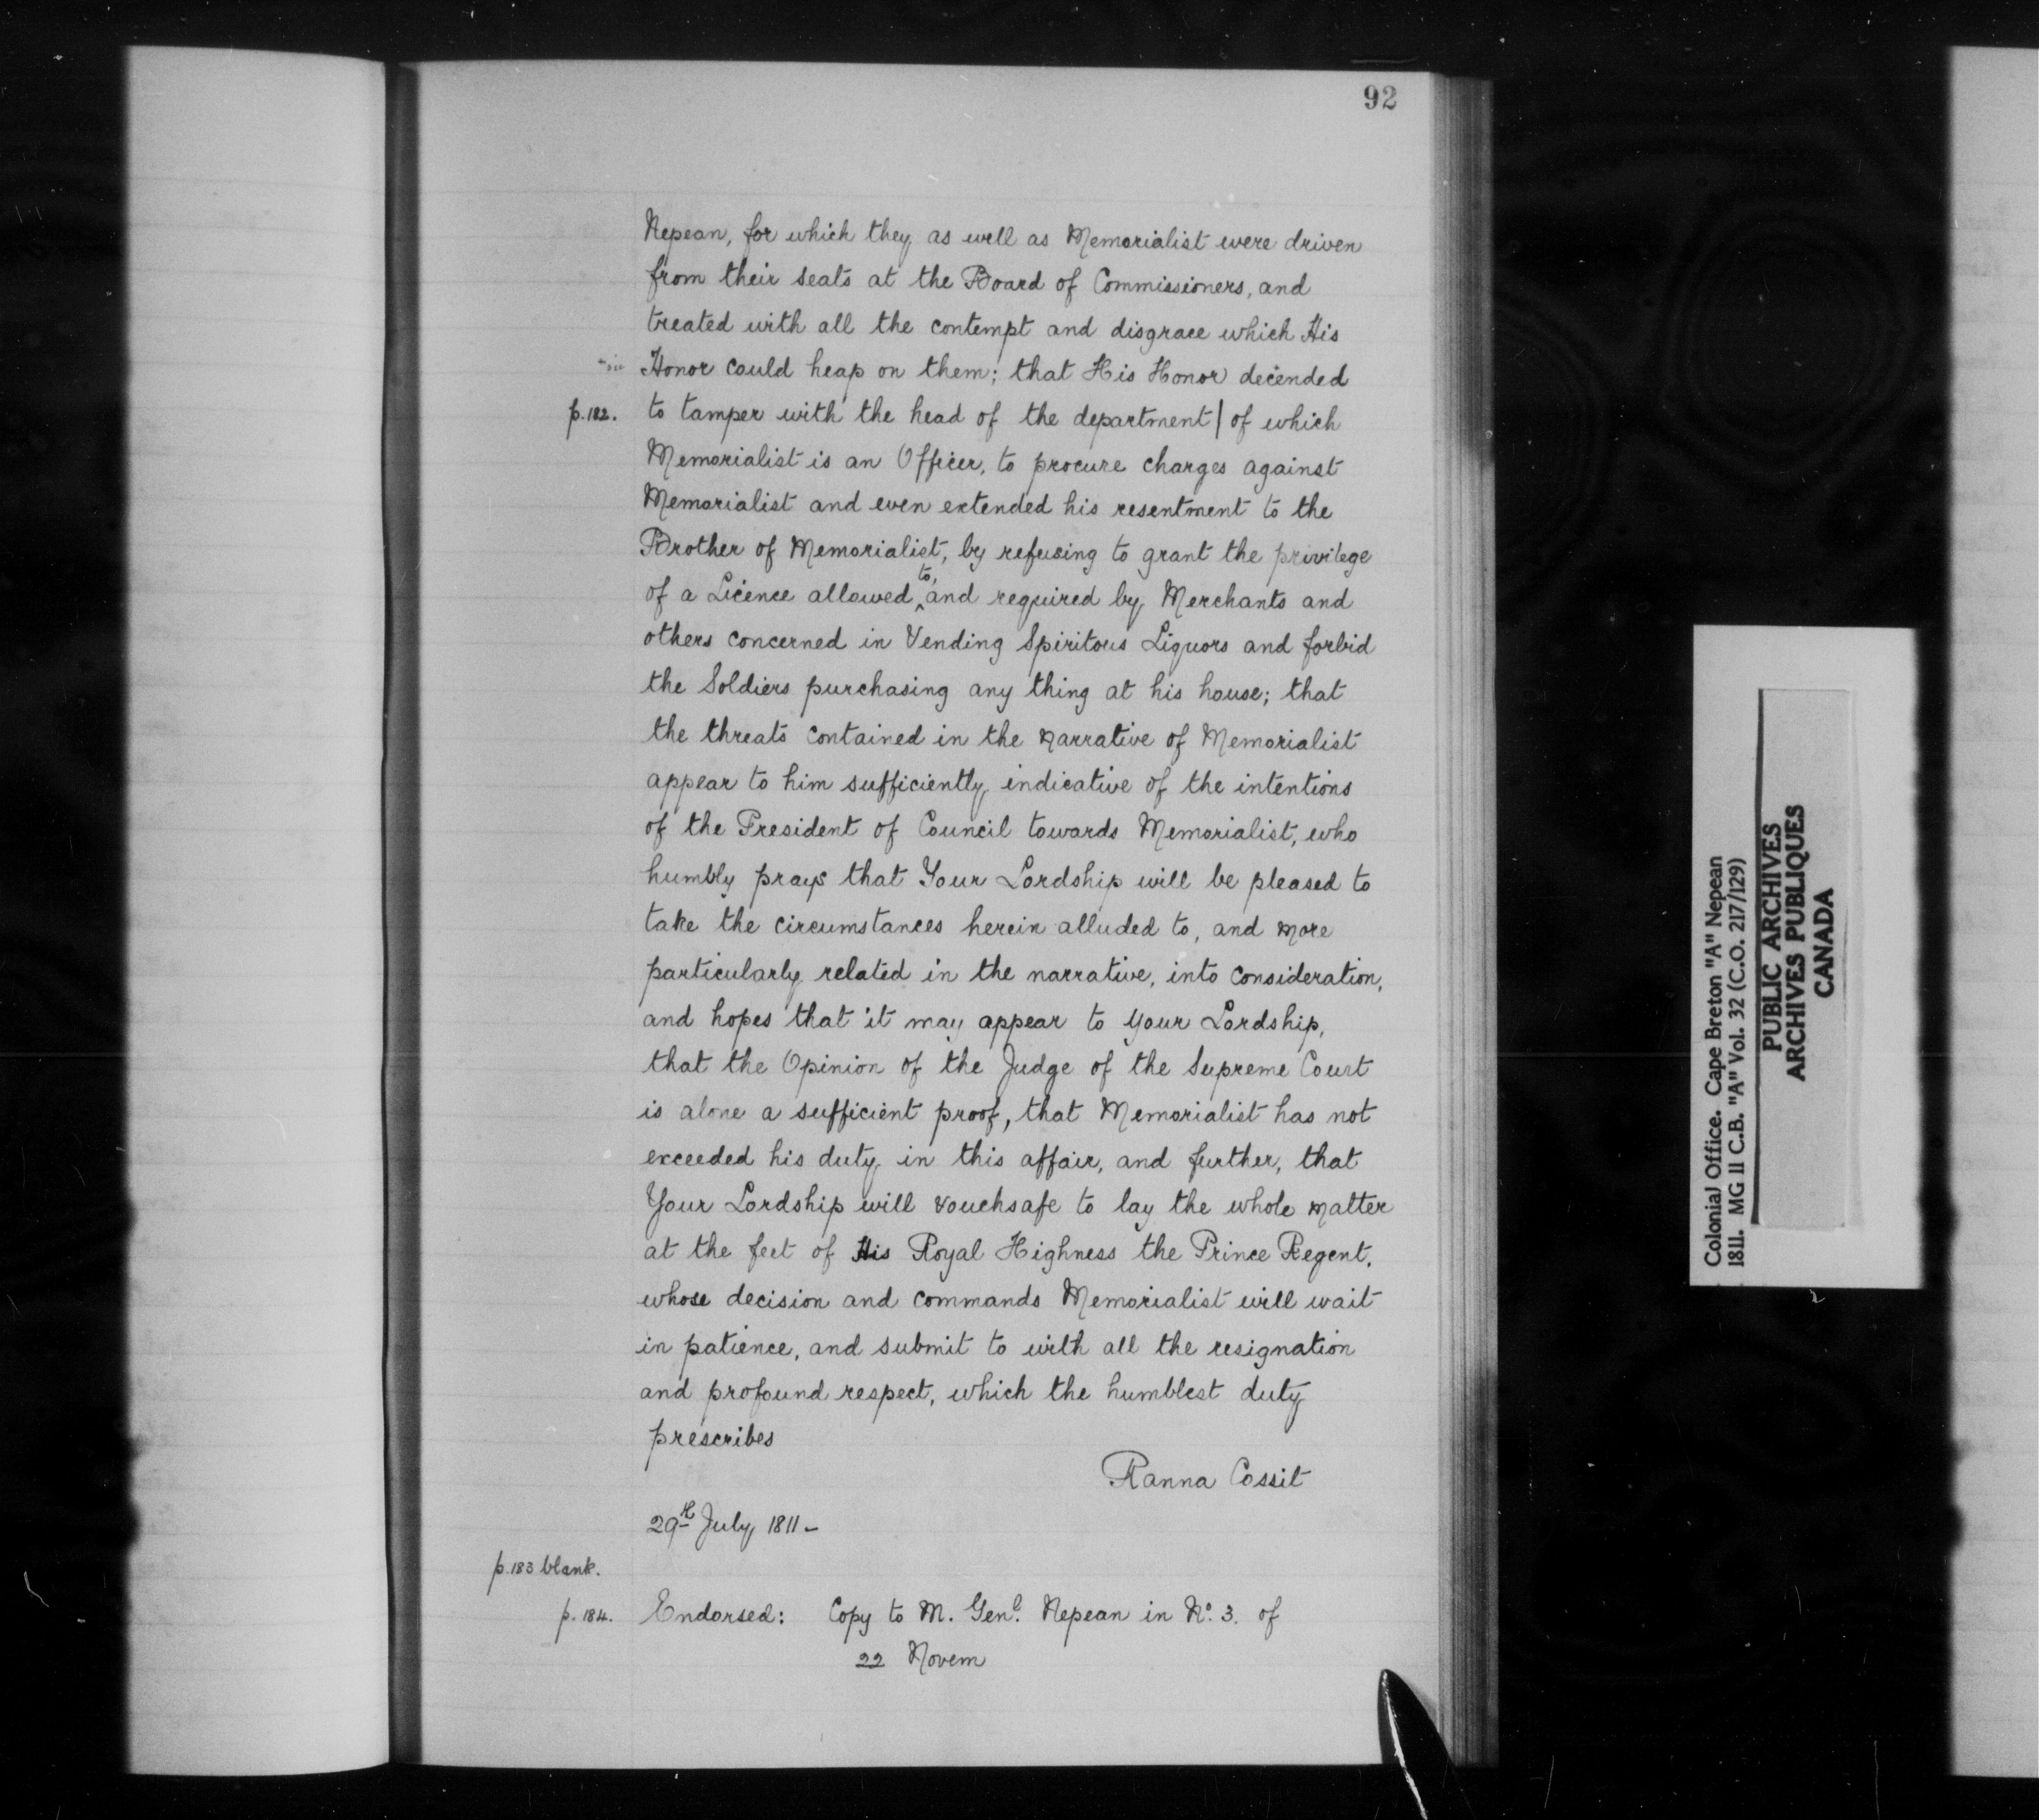 92
Nepean, for which they as well as Memorialist were driven
from their seats at the Board of Commissioners, and
treated with all the contempt and disgrace which His
Honor could heap on them; that His Honor decended
p.182. to tamper with the head of the department | of which
Memorialist is an Officer, to procure charges against
Memorialist and even extended his resentment to the
Brother of Memorialist, by refusing to grant the privilege
of a Licence allowed ^to, and required by Merchants and
others concerned in Vending Spiritous Liquors and forbid
the Soldiers purchasing any thing at his house; that
the threats contained in the narrative of Memorialist
appear to him sufficiently indicative of the intentions
of the President of Council towards Memorialist, who
humbly prays that Your Lordship will be pleased to
take the circumstances herein alluded to, and more
particularly related in the narrative, into consideration,
and hopes that it may appear to your Lordship,
that the Opinion of the Judge of the Supreme Court
is alone a sufficient proof, that Memorialist has not
exceeded his duty in this affair, and further, that
Your Lordship will vouchsafe to lay the whole matter
at the feet of His Royal Highness the Prince Regent,
whose decision and commands Memorialist will wait
in patience, and submit to with all the resignation
and profound respect, which the humblest duty
prescribes
Ranna Cossit
29th July 1811-
p.183 blank.
p.184. Endorsed: Copy to M. Genl. Nepean in No. 3. of
22 Novem
Colonial Office. Cape Breton "A" Nepean
1811. MG 11 C.B. "A" Vol. 32 (C.O. 217/129)
PUBLIC ARCHIVES
ARCHIVES PUBLIQUES
CANADA